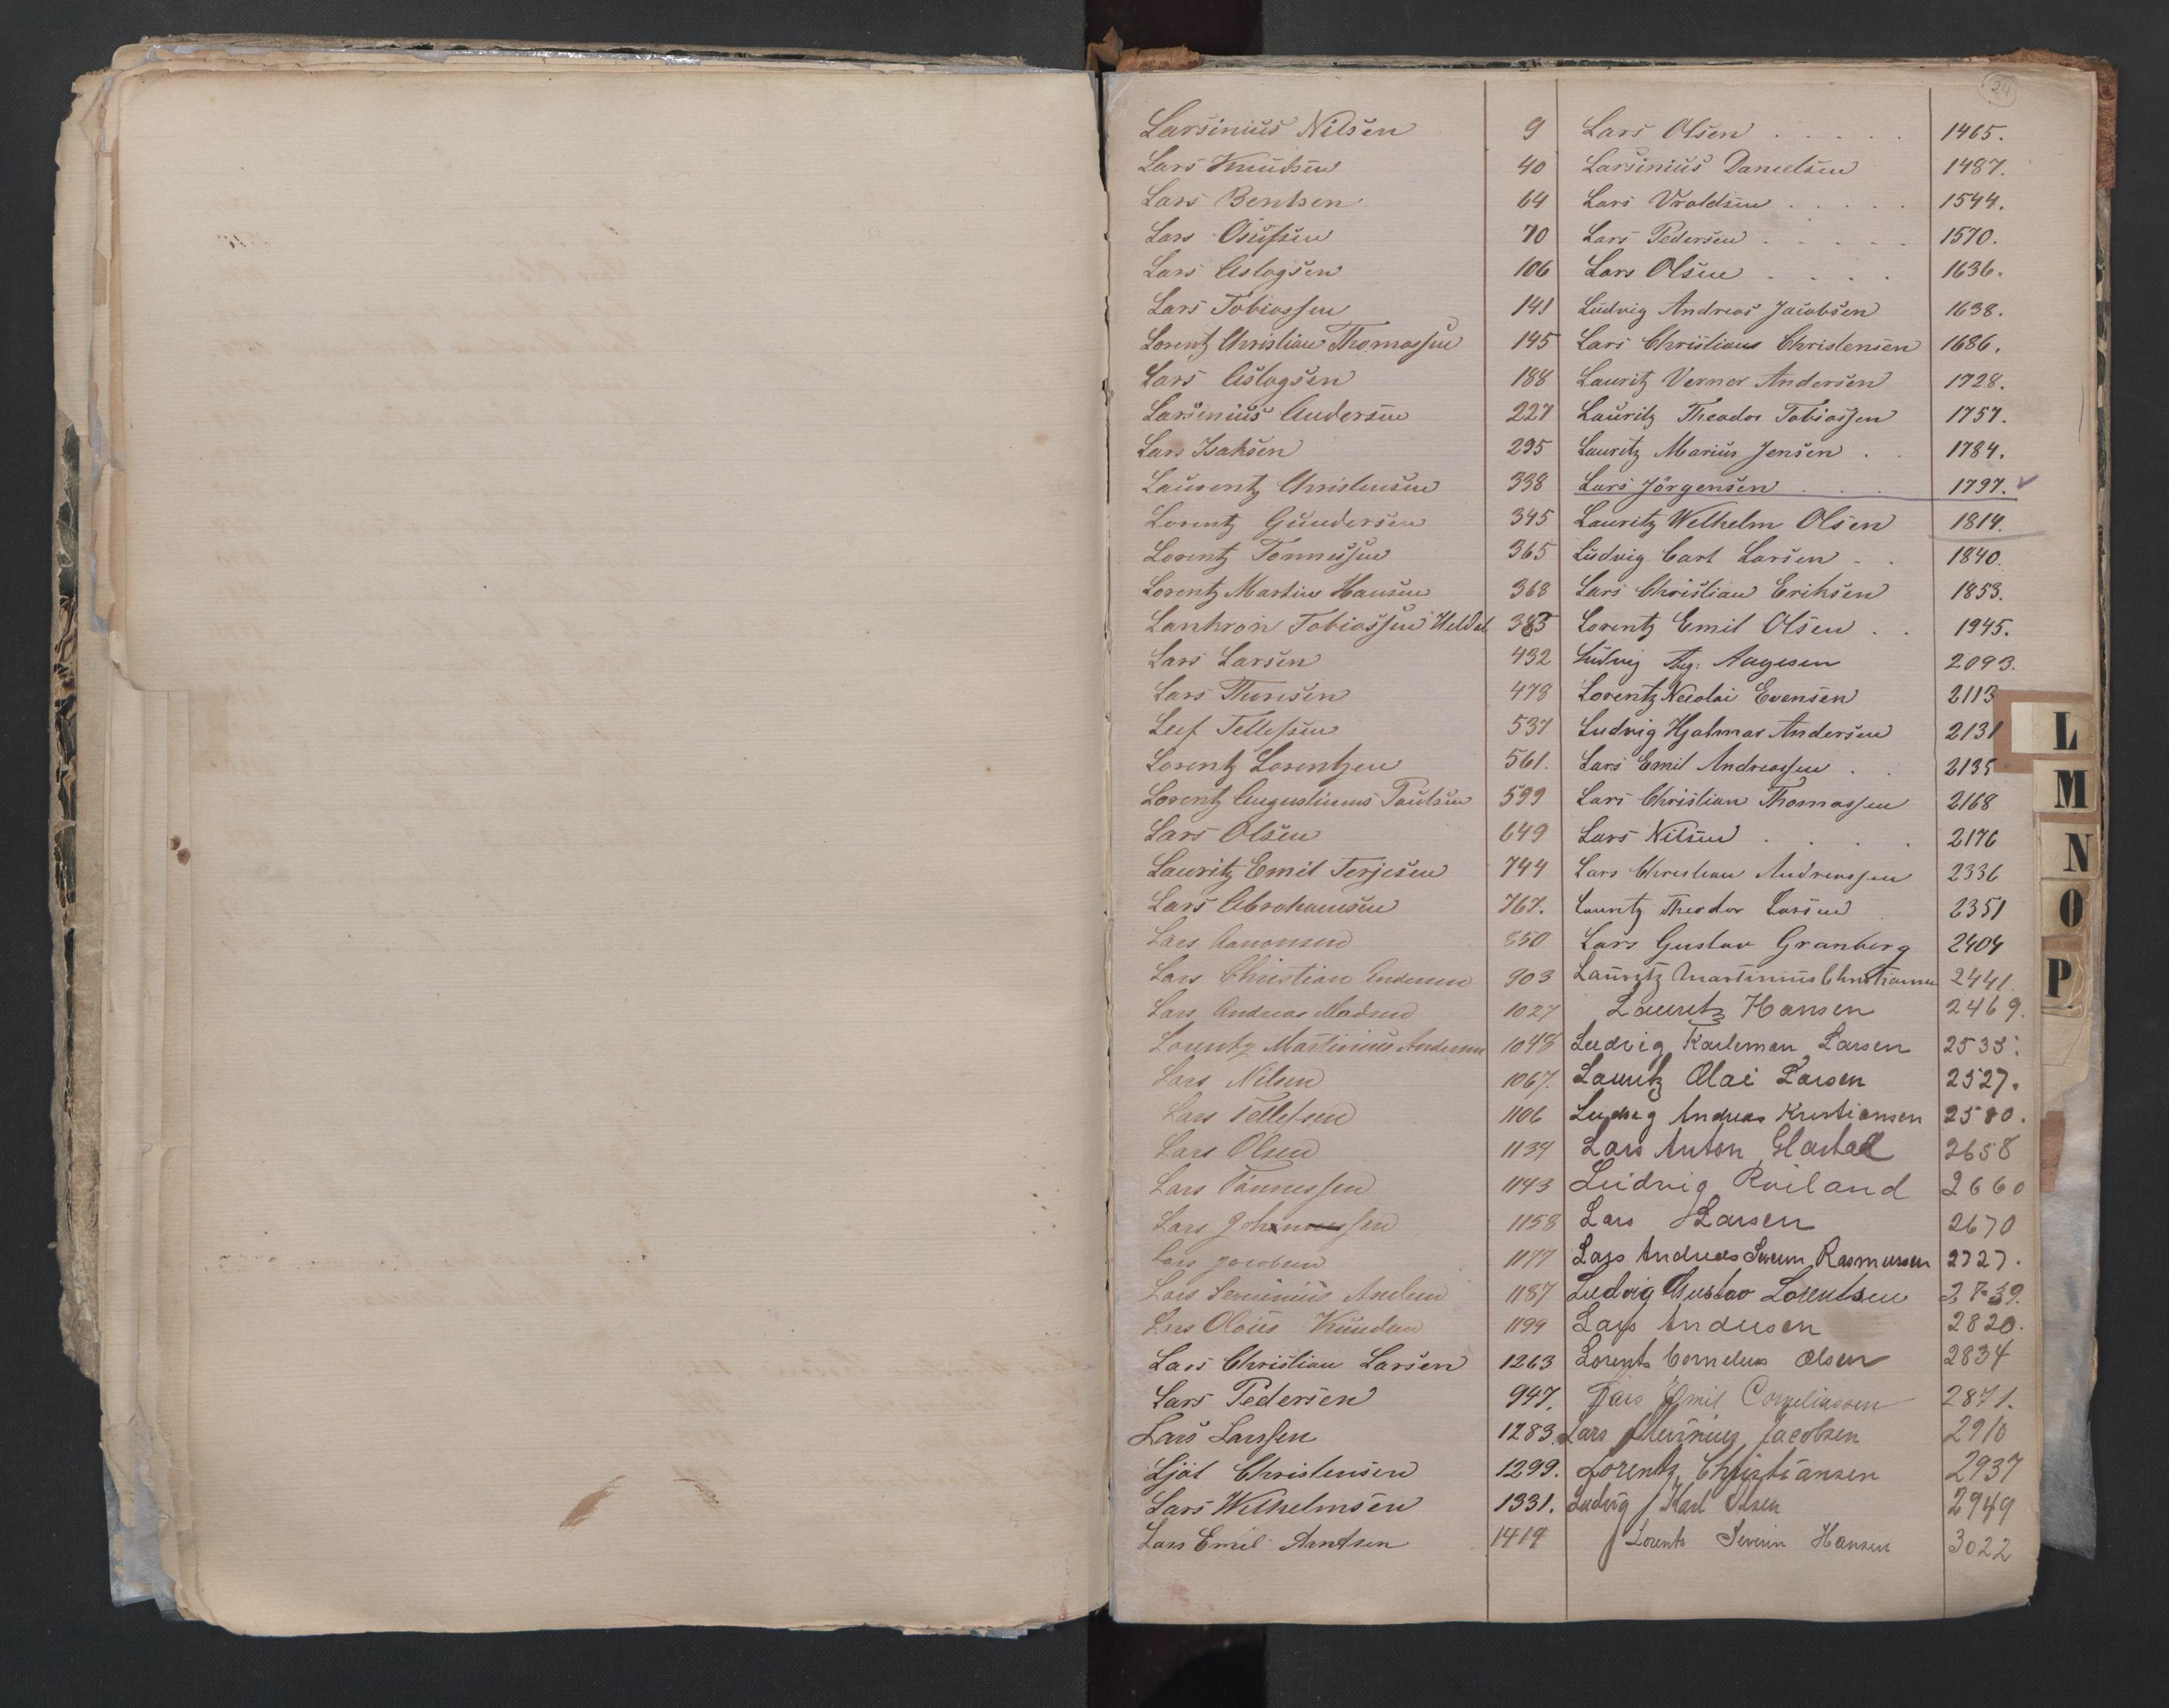 24
Larsinius Nilsen 9
Lars Knudsen 40
Lars Bentsen 64
Lars Osufsen 70
Lars Aslagsen 106
Lars Tobiassen 141
Lorentz Christian Thomassen 145
Lars Aslagsen 188
Larsinius Andersen 227
Lars Isaksen 295
Laurentz Christensen 338
Lorentz Gundersen 345
Lorentz Tønnessen 365
Lorentz Martin Hansen 368
Lankron Tobiassen Heldal 383
Lars Larsen 432
Lars Thorsen 478
Leif Tellefsen 537
Lorentz Lorentzen 561.
Lorentz Augustinus Paulsen 599
Lars Olsen 649
Lauritz Emil Terjesen 744
Lars Abrahamsen 767.
Lars Aanonsen 850
Lars Christian Andersen 903
Lars Andreas Madsen 1027
Lorentz Martinius Andersen 1048
Lars Nilsen 1067.
Lars Tellefsen 1106
Lars Olsen 1134
Lars Tönnessen 1143
Lars 1158
Lars Jacobsen 1177
Lars Severinius 1187
Lars Olaus Knudsen 1199
Lars Christian Larsen 1263
Lars Pedersen 947.
Lars Larssen 1283.
Ljøt Christensen 1299.
Lars Wilhelmsen 1331.
Lars Emil Arntsen 1419
Lars Olsen . . . . . 1465.
Larsinius Danielsen 1487.
Lars Vraldsen . . . . . 1544.
Lars Pedersen . . . . . 1570.
Lars Olsen . . . . 1636.
Ludvig Andreas Jacobsen 1638.
Lars Christian Christensen 1686.
Lauritz Verner Andersen 1728.
Lauritz Theodor Tobiassen 1757.
Lauritz Marius Jensen . . 1784.
Lars Jörgensen . . . 1797. ✓
Lauritz Wilhelm Olsen 1814.
Ludvig Carl Larsen . . 1840.
Lars Christian Eriksen 1853.
Lorentz Emil Olsen . . 1945.
Ludvig Aug: Aagesen 2093.
Lorentz Nicolai Evensen 2113
Ludvig Hjalmar Andersen 2131
Lars Emil Andreassen . . 2135
Lars Christian Thomassen 2168
Lars Nilsen . . . . 2176
Lars Christian Andreassen 2336
Lauritz Theodor Larsen 2351
Lars Gustav Granberg 2404
Lauritz Martinius Christiansen 2441.
Lauritz Hansen 2469.
Ludvig Karleman Larsen 2535.
Lauritz Olai Larsen 2527.
Ludvig Andreas Kristiansen 2580.
Lars Anton Glastad 2658
Ludvig Roiland 2660
Lars Larsen 2670
Lars Andreas Severin Rasmussen 2727.
Ludvig Gustav Lorentsen 2739.
Lars Andersen 2820.
Lorents Cornelius Olsen 2834
Lars Emil Corneliussen 2871.
Lars Jacobsen 2910
Lorentz Christiansen 2937
Ludvig Karl Olsen 2949
Lorents Severin Hansen 3022
L
M
N
O
P